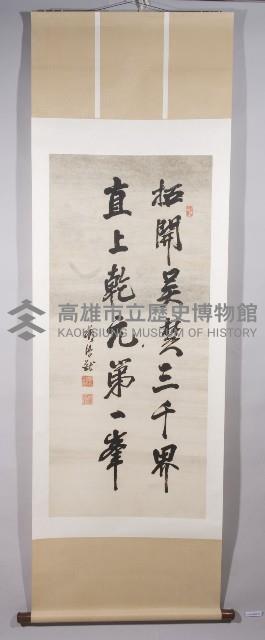 招開吳越三千界
直上乾元第一峯
高雄市立歷史博物館
KAOHSIUNG MUSEUM OF HISTORY